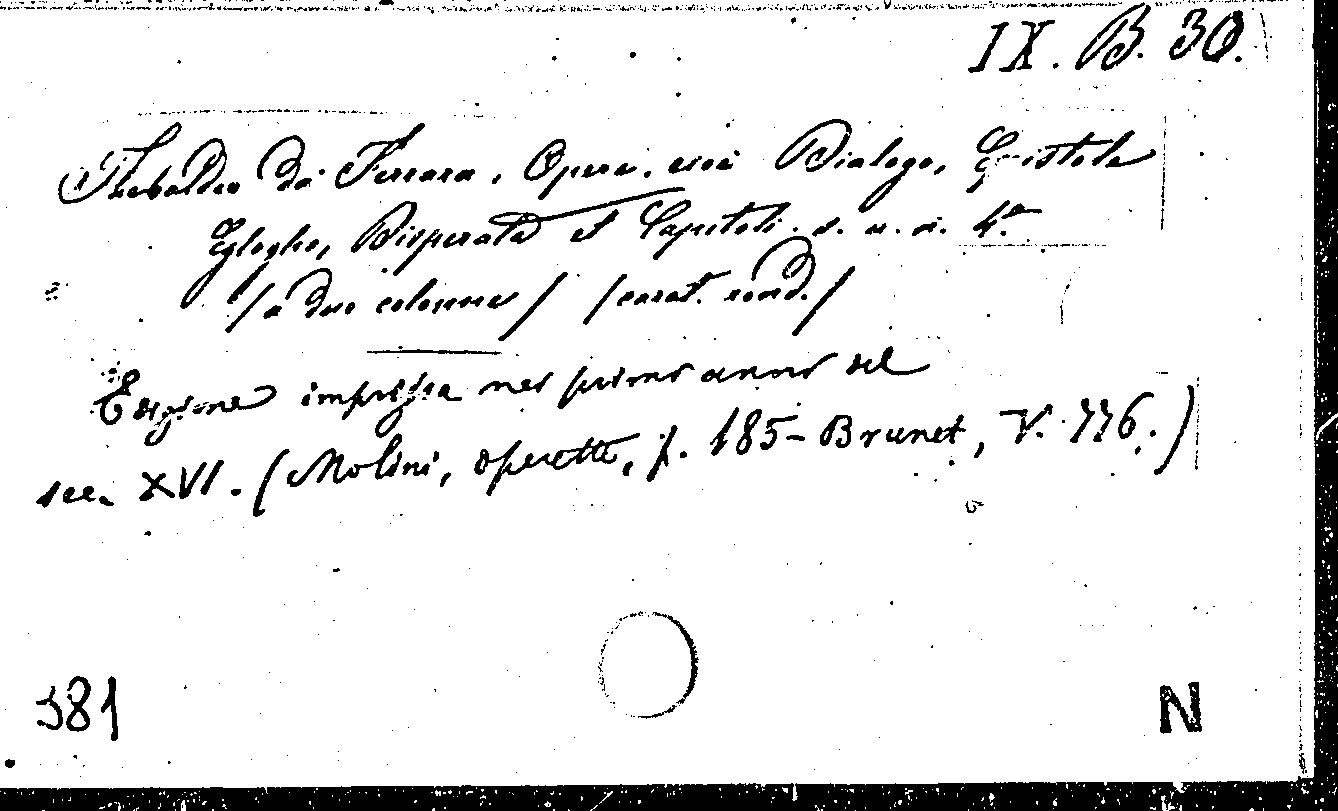 IX. B. 30.
Thebaldeo da Ferrara, Opere, cioè Dialogo, Epistole
Egloghe, Disperata et Capitoli. s. u. n. 4.º
/a due colonne/ /carat. rond./
Edizione impressa nel primo anno del
sec. XVI. (Molini, operette, p. 185 - Brunet, V. 776.)
381
N